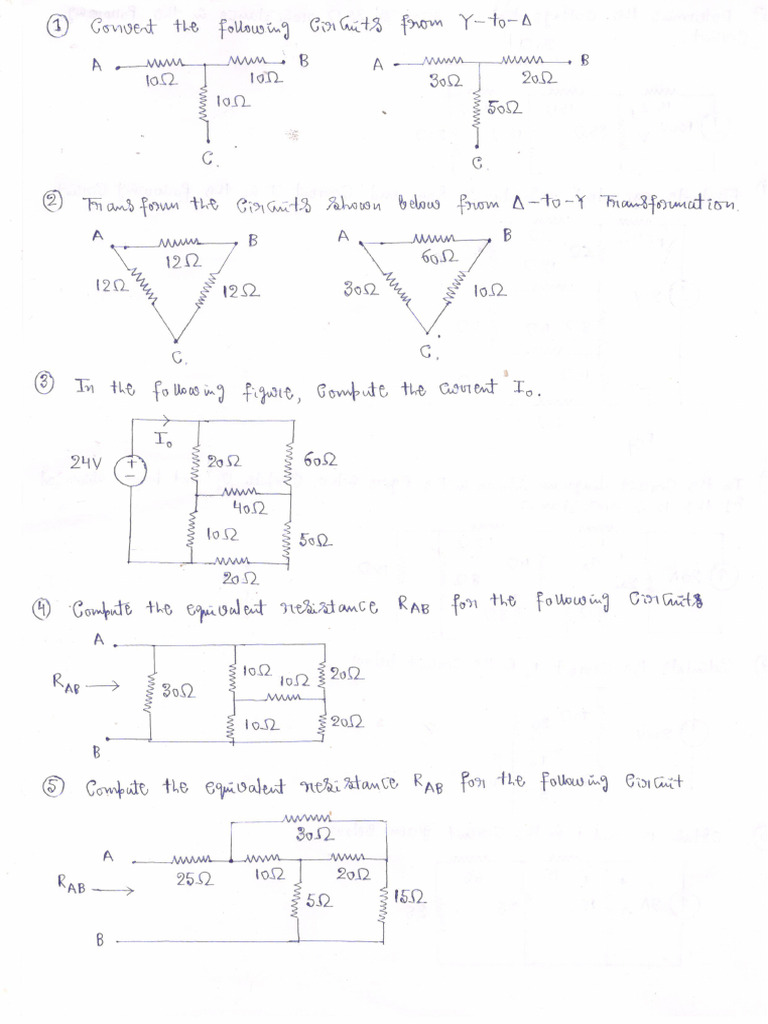 ① Convert the following Circuits from Y-to-Δ
A 10Ω 10Ω B 10Ω C.
A 30Ω 20Ω B 50Ω C.
② Transform the Circuits shown below from Δ-to-Y Transformation.
A B 12Ω 12Ω 12Ω C.
A B 60Ω 30Ω 10Ω C.
③ In the following figure, Compute the current I₀.
I₀
24V + - 20Ω 60Ω
40Ω
10Ω 50Ω
20Ω
④ Compute the equivalent resistance R_AB for the following Circuits
A
R_AB 30Ω 10Ω 10Ω 20Ω
10Ω 20Ω
B
⑤ Compute the equivalent resistance R_AB for the following Circuit.
30Ω
A 25Ω 10Ω 20Ω
R_AB 5Ω 15Ω
B